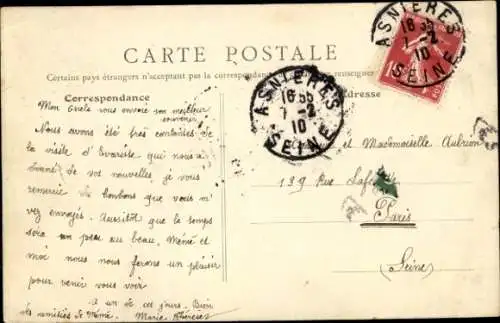 CARTE POSTALE
Certains pays étrangers n'acceptent pas la correspondance
renseigner
Correspondance
Adresse
ASNIERES
16 35
7 - 2
10
SEINE
ASNIERES
16 35
7 - 2
10
SEINE
Mon oncle vous envoie son meilleur
souvenir
Nous avons été très contentes de
la visite d'Evariste qui nous a
donné de vos nouvelles je vous
remercie des bonbons que vous m'
vez envoyés. Aussitôt que le temps
sera un peu au beau. Mémé et
moi nous nous ferons un plaisir
pour venir vous voir
a un de ces jours. Bien
des amitiés de Mémé. Marie Thérèse
et Mademoiselle Aubrion
139 Rue
Paris
(Seine)